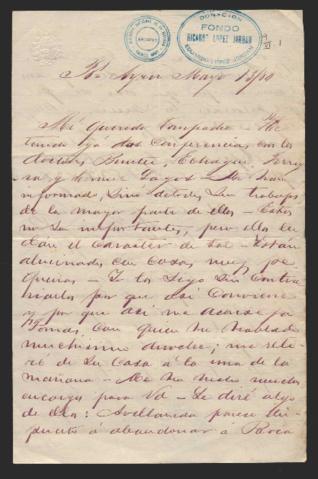 DONACIÓN
FONDO
RICARDO LOPEZ JORDAN
Bs Ayres Mayo 13/80
Mi querido Compadre - He
tenido ya dos Conferencias con los
doctores
y demas Lagos - Me han
informado, sino de todos, de los trabajos
de la mayor parte de ellos - Estos
no son importantes, pero ellos le
dan el Caracter de tal - Están
alucinados con Cosas muy pe
queñas - Yo los sigo sin Contra
riarlos por que asi Conviene
y por que asi me aconseja
Tomas, con quien he hablado
muchisimo
ré de su Casa á la una de la
mañana - Me ha hecho muchos
encargos para Vd - Le diré algo
de eso: Avellaneda parece dis
puesto á abandonar á Roca